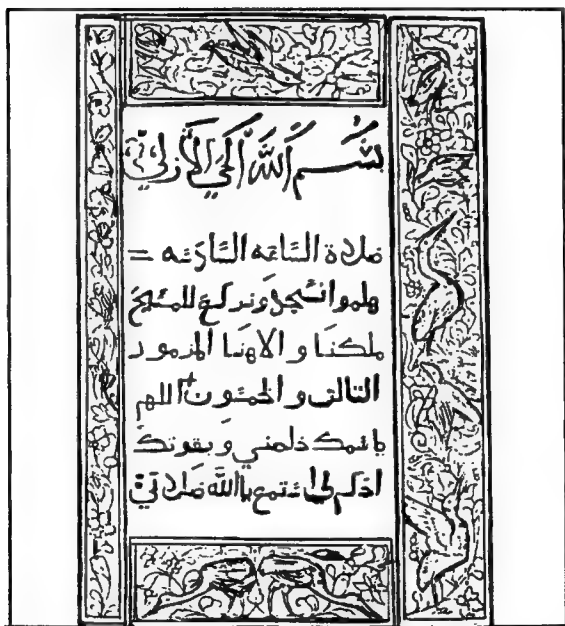 بسم الله الحي الازلي
صلاة الساعه السادسه =
هلموا نسجد ونركع للمسيح
ملكنا و الاهنا المزمور
التالت و الخمسون اللهم
باسمك خلصني وبقوتك
احكم لي استمع ياالله صلاتي